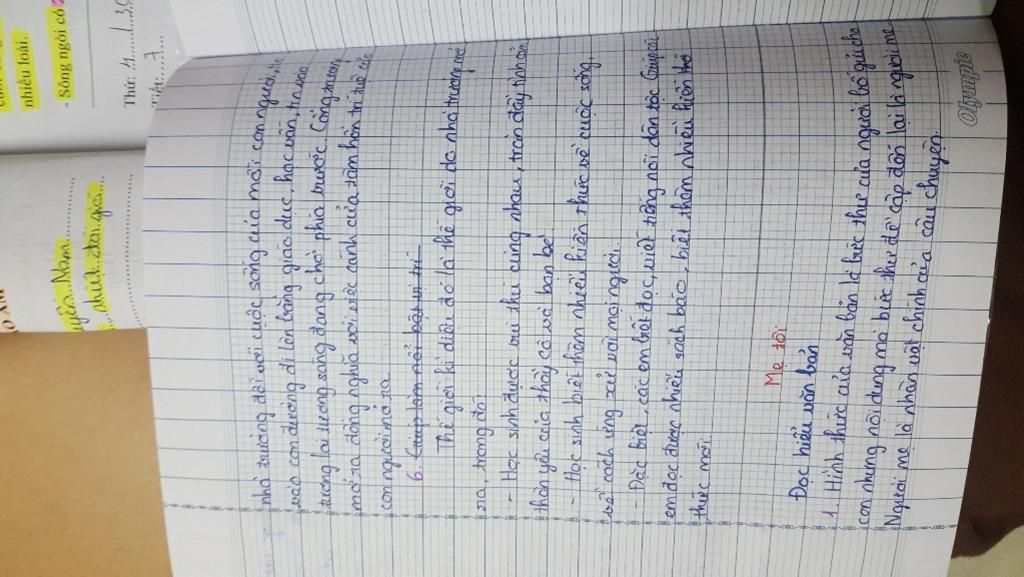 nhà trường đối với cuộc sống của mỗi con người, tin
vào con đường đi lên bằng giáo dục, học vấn, tin vào
tương lai tương sáng đang chờ phía trước. Cổng trường
mở ra đồng nghĩa với việc cánh của tâm hồn trí tuệ
con người mở ra
6. Giúp làm nổi bật vị trí
Thế giới kì diệu đó là thế giới do nhà trường mở
ra, trong đó
- Học sinh được vui thú cùng nhau, tràn đầy tình cảm
thân yêu của thầy cô và bạn bè.
- Học sinh biết thêm nhiều kiến thức về cuộc sống
về cách ứng xử với mọi người.
- Đặc biệt, các em biết đọc, viết tiếng nói dân tộc Giúp các
em đọc được nhiều sách báo, biết thêm nhiều kiến
thức mới.
Mẹ tôi
Đọc hiểu văn bản
1. Hình thức của văn bản là bức thư của người bố gửi cho
con nhưng nội dung mà bức thư đề cập đến lại là người mẹ
Người mẹ là nhân vật chính của câu chuyện.
Olympic
nhiều loài.
- Sông ngòi có
Thứ: 4
Tiết: 7
Nam